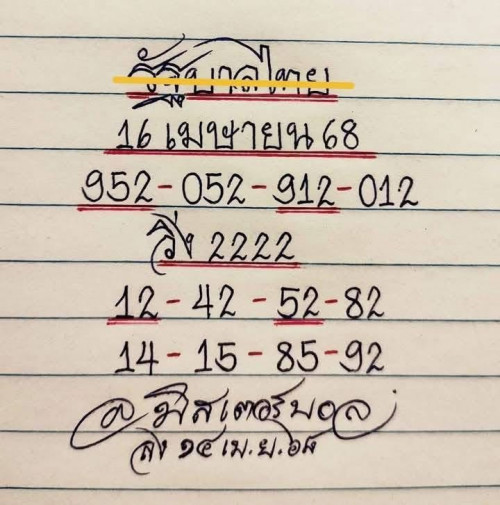 รัฐบาลไทย
16 เมษายน 68
952-052-912-012
วิ่ง 2222
12-42-52-82
14-15-85-92
อ.มิสเตอร์บอล
ลง ๑๔ เม.ย.๖๘